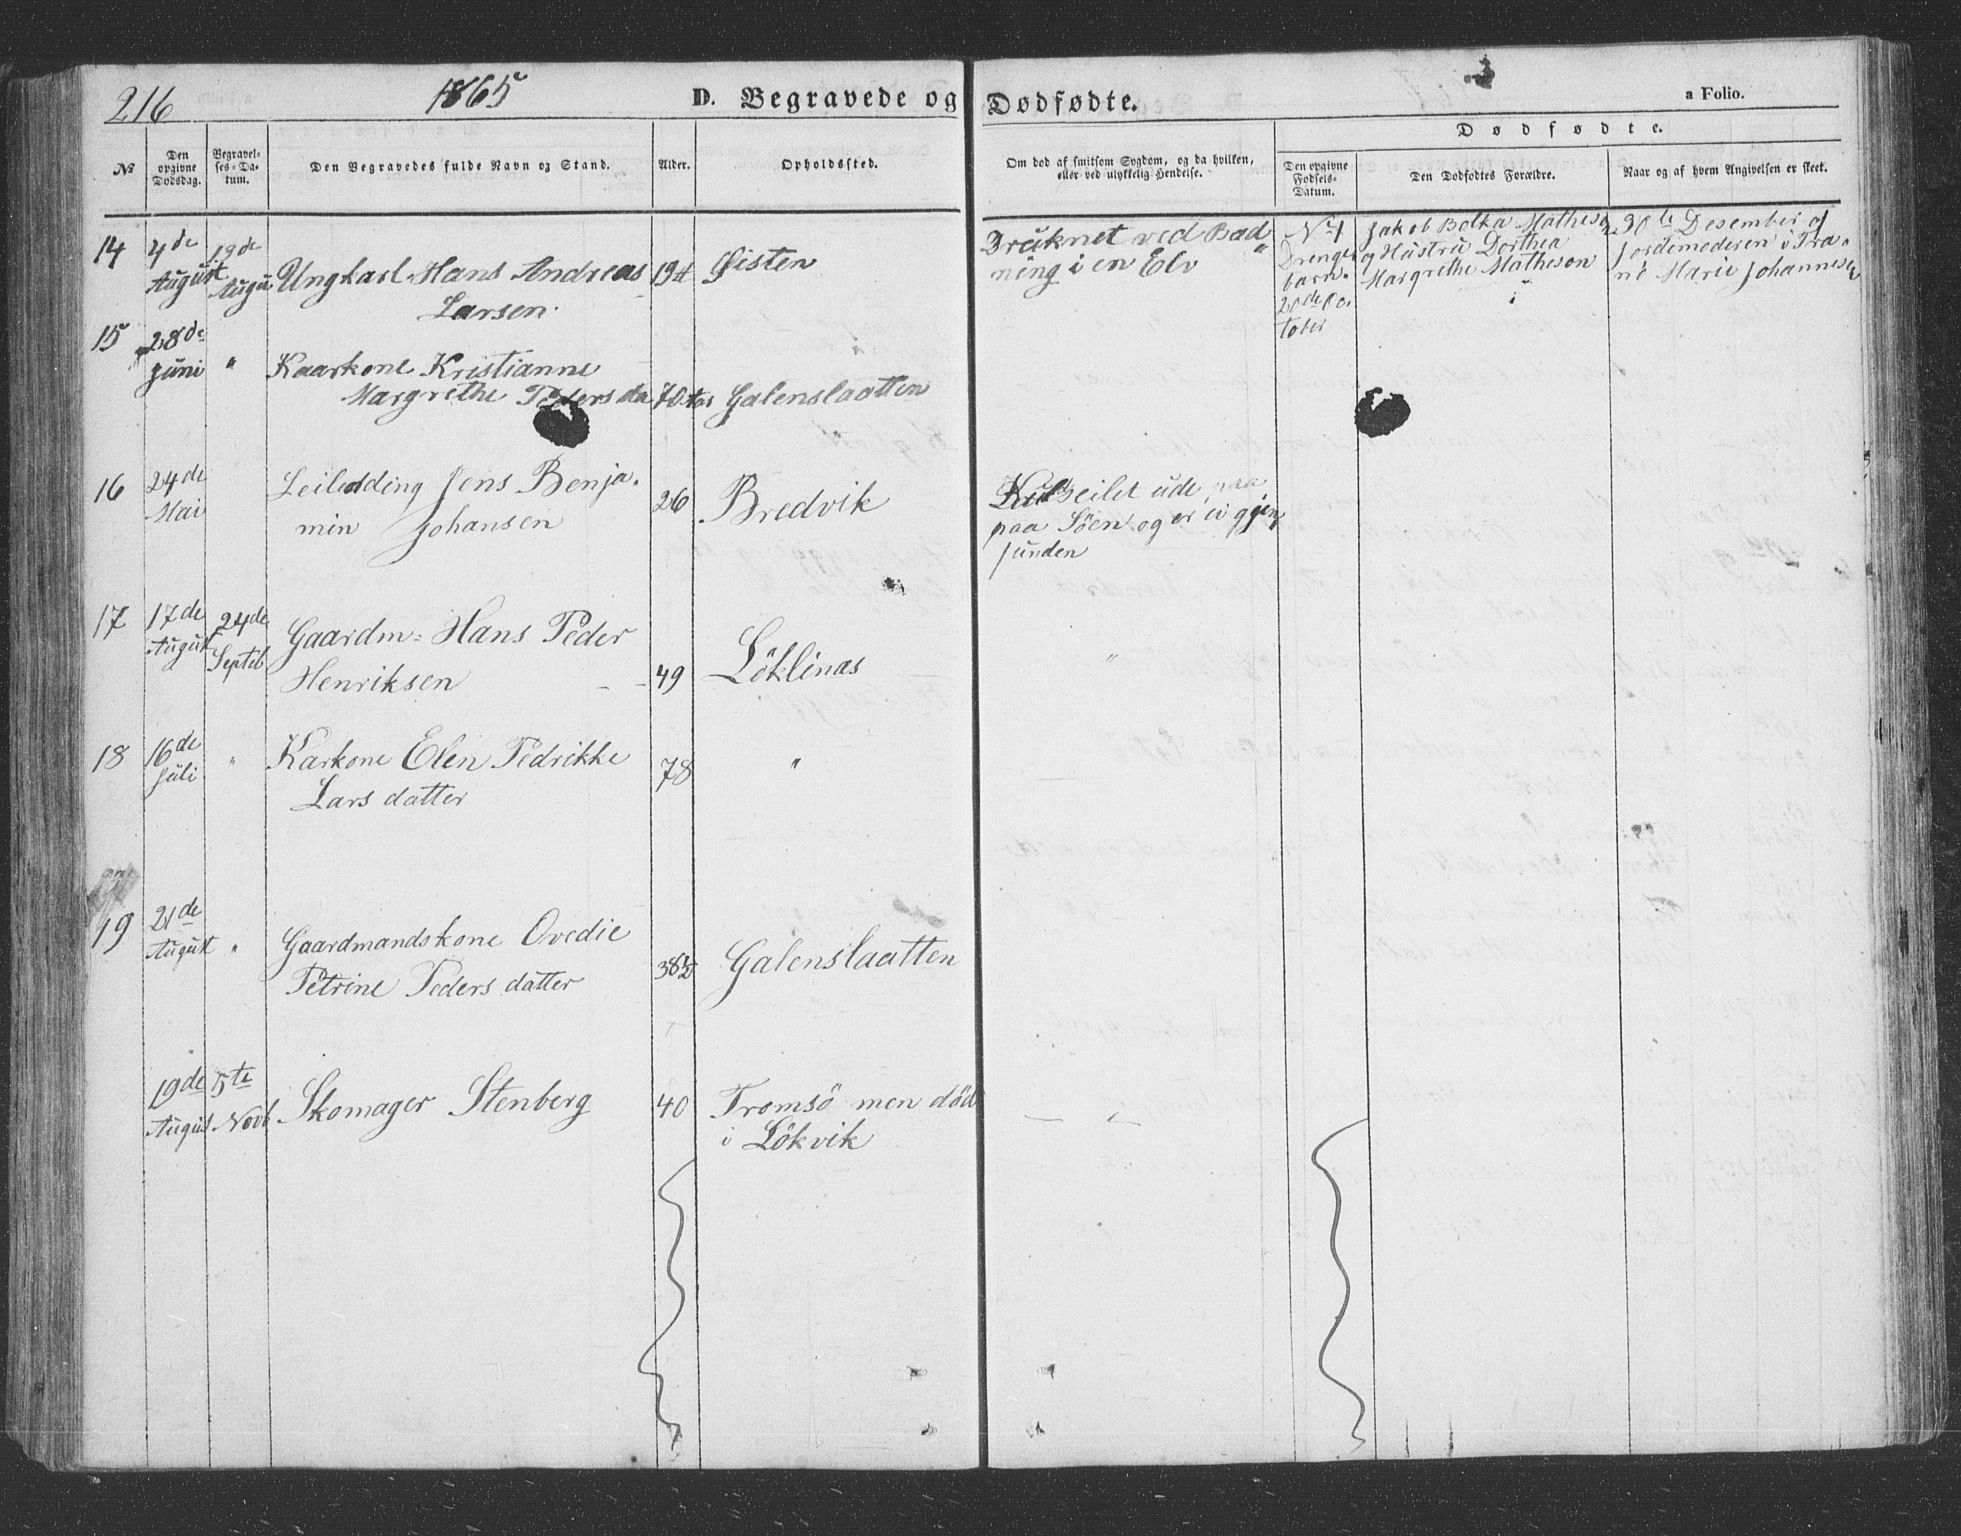 216 1865 D. Begravede og Dødfødte. a Folio.
Dødfødte.
No Den opgivne Dødsdag. Begravelses-Datum. Den Begravedes fulde Navn og Stand. Alder. Opholdssted. Om død af smitsom Sygdom, og da hvilken, eller ved ulykkelig Hendelse. Den opgivne Fødsels-Datum. Den Dødfødtes Forældre. Naar og af hvem Angivelsen er skeet.
14 4de August 19de Augu Ungkarl Hans Andreas
Larsen 19 Øisten
Drüknet ved Bad
ning i en Elv
No 1
Drenge
barn
20de Oc
tober
Jakob Bolka Matheson
og Hüstrü Dorthea
Margrethe Matheson
30te Desember af
Jordemoderen i Tra
nø Marie Johannesen
15 28de Juni " Kaarkone Kristianne
Margrethe Pedersda 70 Galenslaatten
16 24de Mai Leilending Jens Benja
min Johansen 26 Bredvik
seilet ude paa
paa Söen og er ei
funden
17 17de August 24de Septeb Gaardm= Hans Peder
Henriksen 49 Löklinas "
18 16de Juli " Karkone Elen Pedrikke
Lars datter 78 "
19 21de August " Gaardmandskone Ovedie
Petrine Peders datter 38½ Galenslaatten
19de August 5te Novb Skomager Stenberg 40 Tromsö men död
i Lökvik